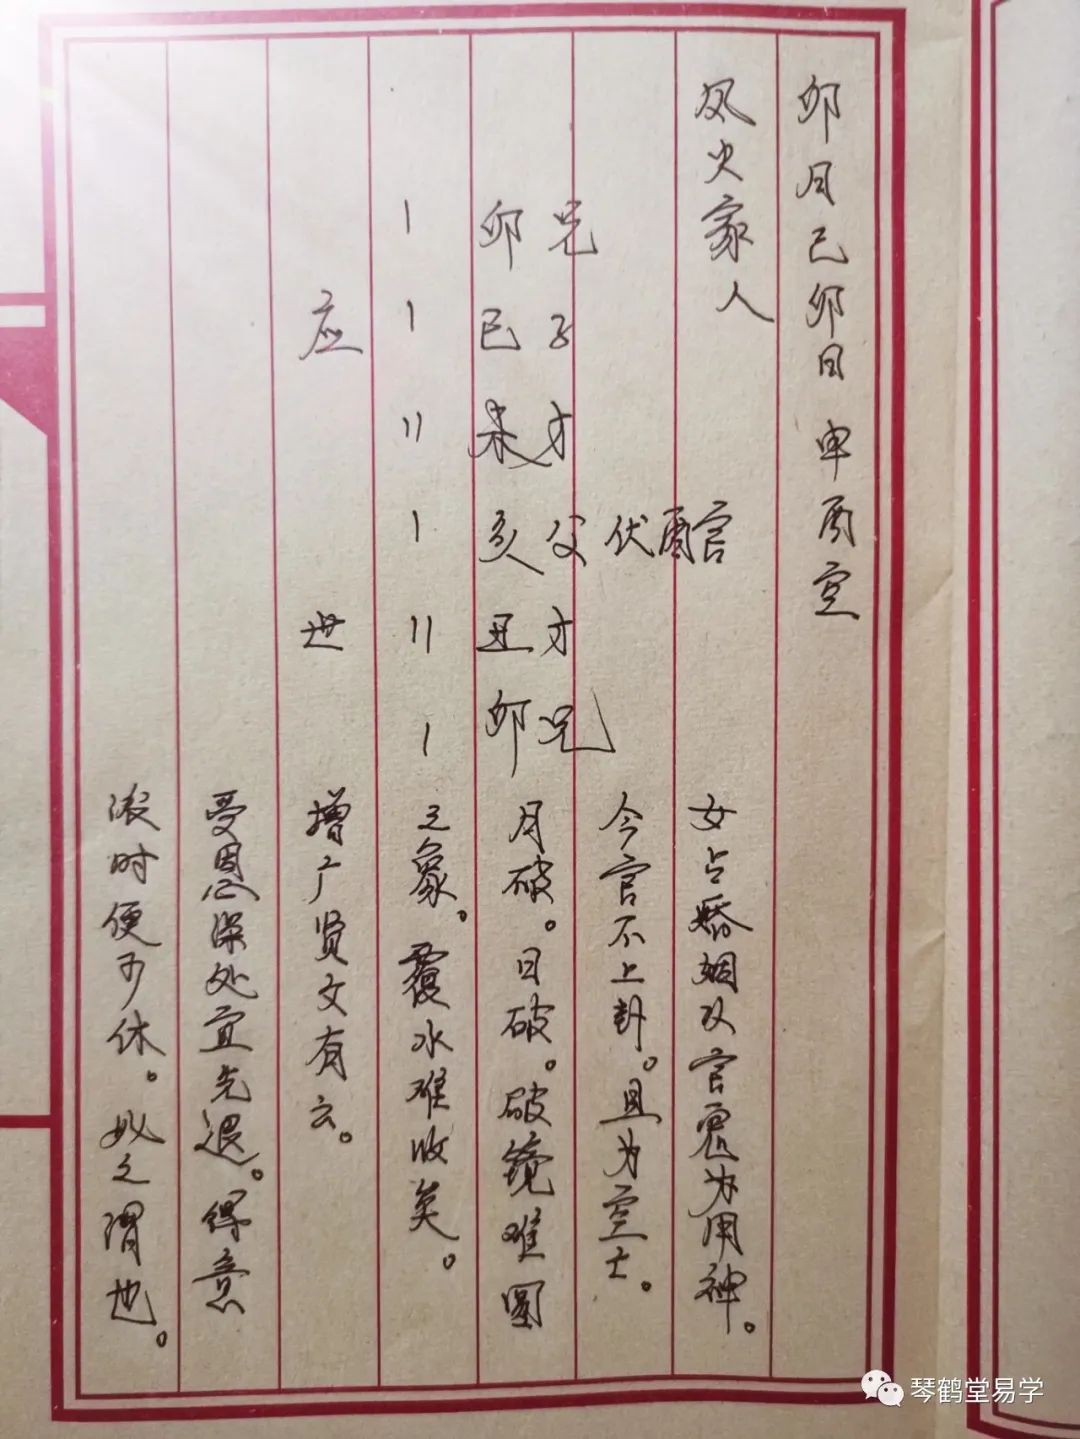 卯月己卯日 申酉空
风火家人
卯兄
应 巳子
未才
亥父伏酉官
世 丑才
卯兄
女占婚姻以官鬼为用神。
今官不上卦。且为空亡。
月破。日破。破镜难圆
之象。覆水难收矣。
增广贤文有云。
受恩深处宜先退。得意
浓时便可休。此之谓也。
琴鹤堂易学